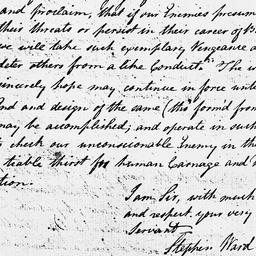 and proclaim, that if our Enemies presum
their threats or persist in their career of
we will take such exemplary Vengeance a
deter others from a like Conduct". The
sincerely hope may continue in force unti
end and design of the same (tho' form'd from
may be accomplished; and operate in such
check our unconscionable Enemy in th
tiable thirst for human Carnage and
tion.
I am, Sir, with much
and respect your very
Servant
Stephen Ward